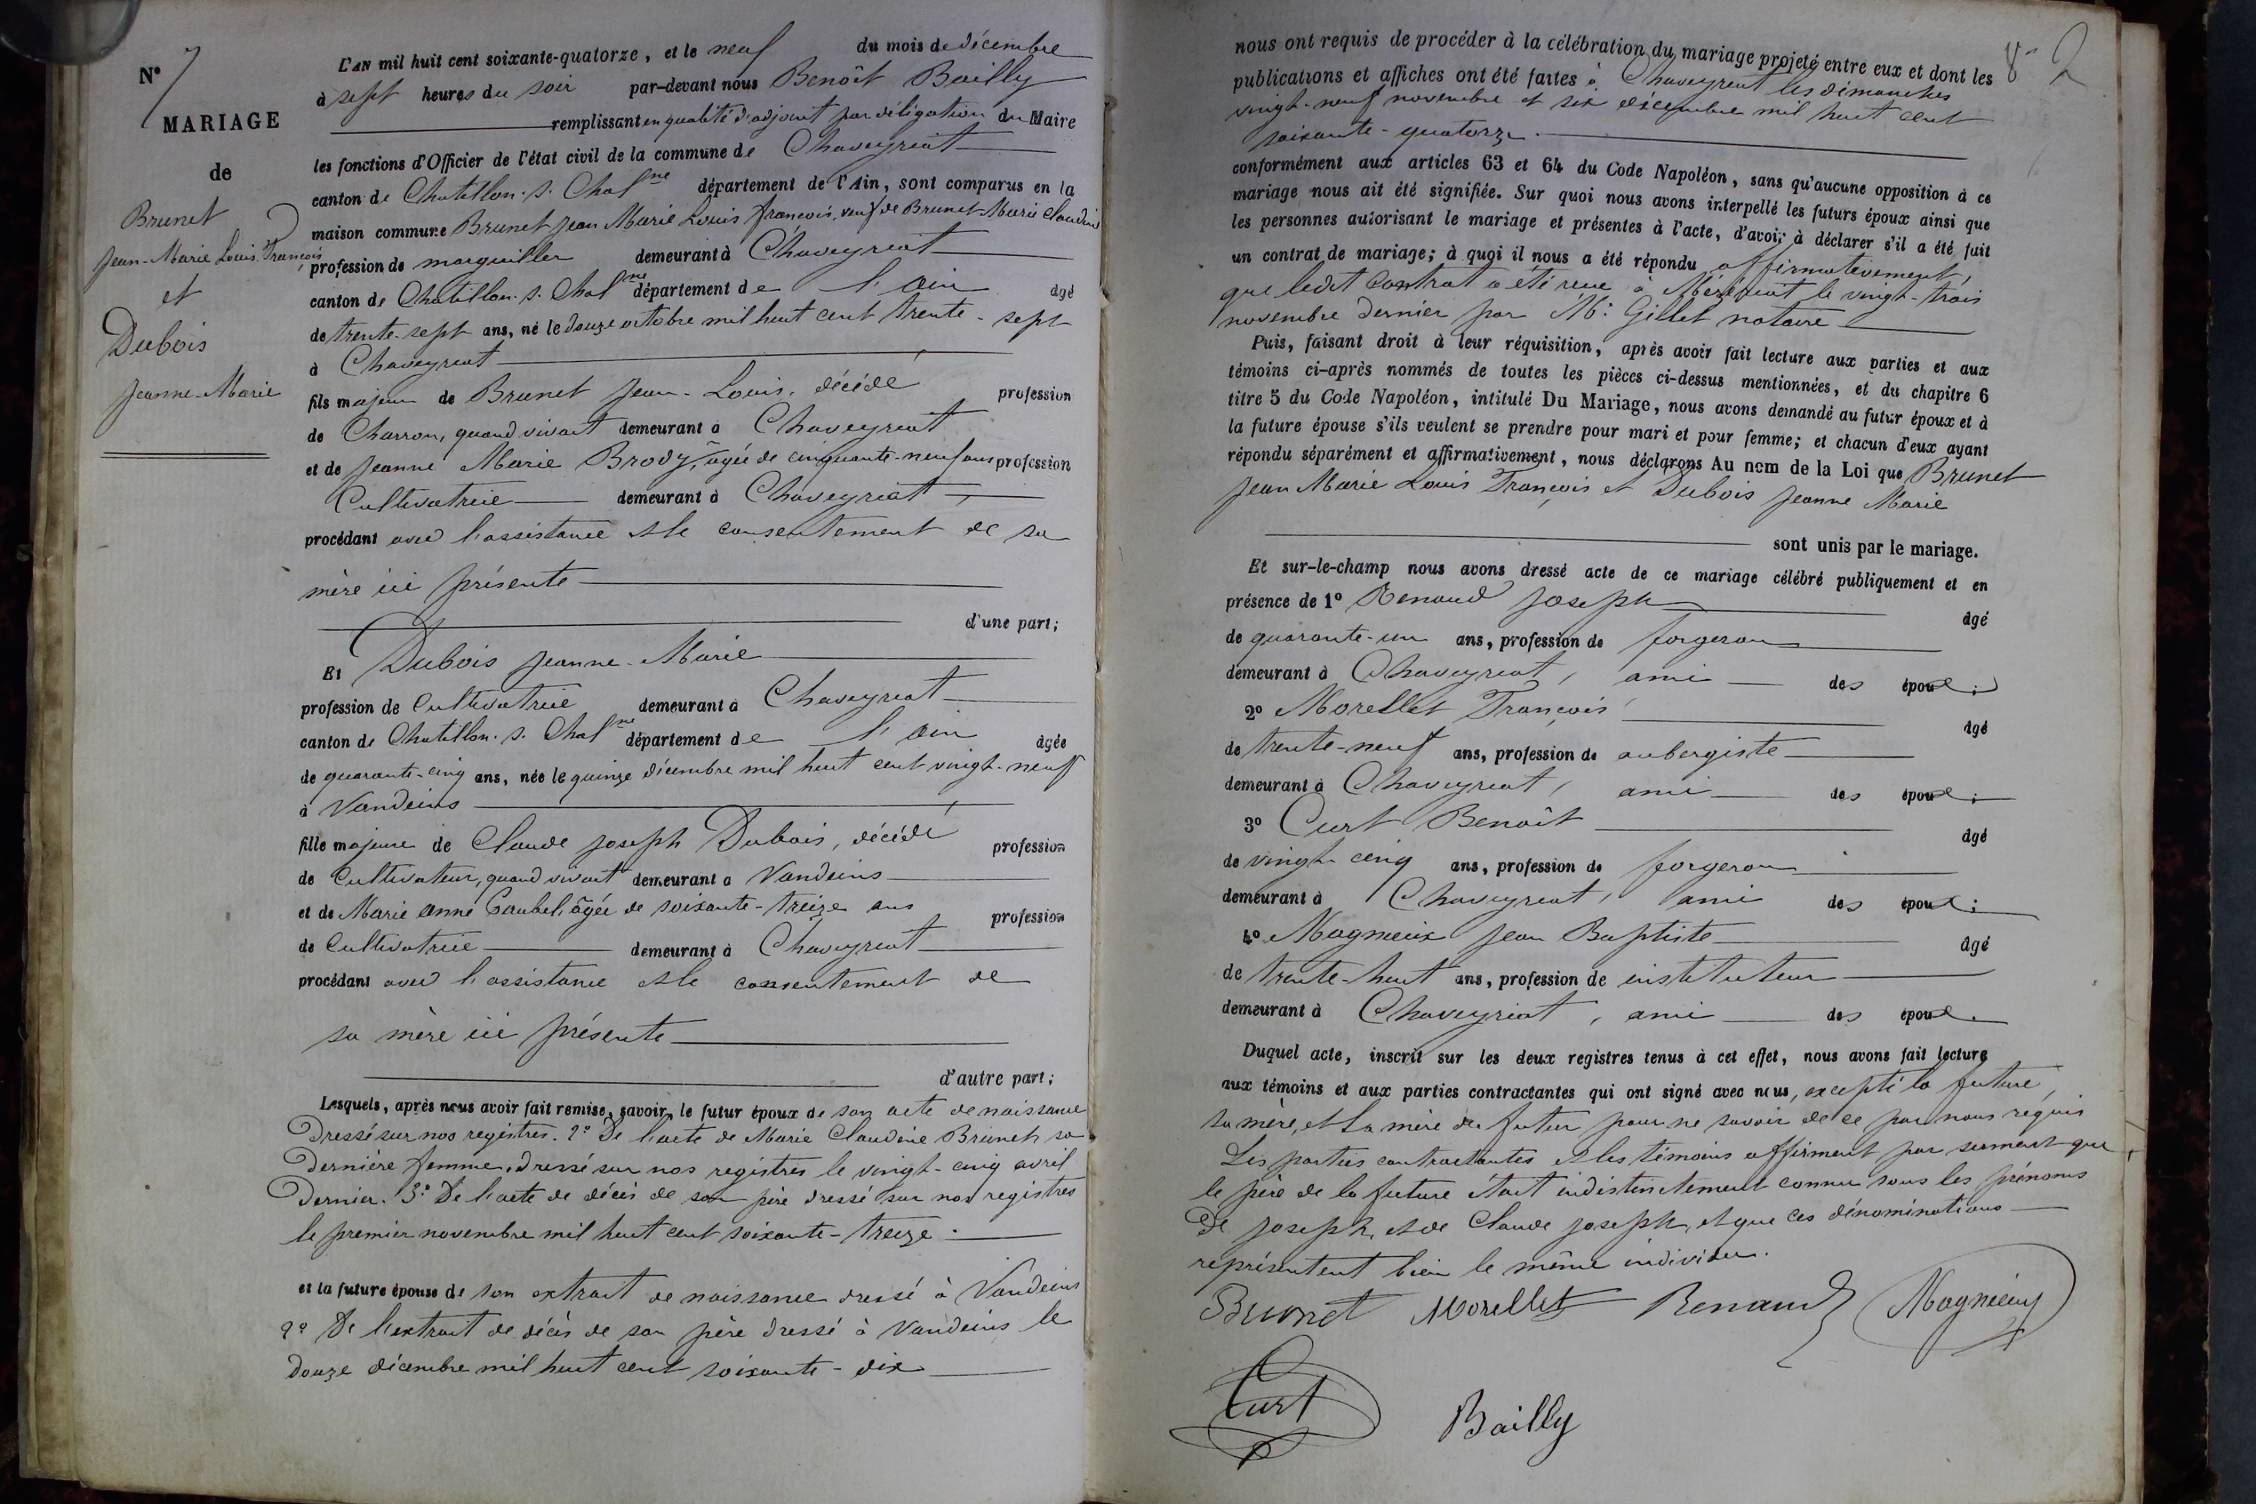 N° 7
MARIAGE
de
Brunet
Jean-Marie Louis François
et
Dubois
Jeanne-Marie
L'AN mil huit cent soixante-quatorze, et le neuf du mois de décembre
à sept heures du soir par-devant nous Benoît Bailly
remplissant en qualité d'adjoint par délégation du Maire
les fonctions d'Officier de l'état civil de la commune de Chaveyriat
canton de Chatillon-s-Chalne département de l'Ain, sont comparus en la
maison commune Brunet Jean Marie Louis françois, veuf de Brunet Marie Claudine
profession de marguiller demeurant à Chaveyriat
canton de Chatillon-s-Chalne département de l'ain âgé
de trente-sept ans, né le douze octobre mil huit cent trente-sept
à Chaveyriat
fils majeur de Brunet Jean-Louis, décédé profession
de Charron, quand vivait demeurant à Chaveyriat
et de Jeanne Marie Brody, âgée de cinquante-neuf ans profession
Cultivatrice demeurant à Chaveyriat,
procédant avec l'assistance et le consentement de sa
mère ici présente
d'une part;
Et Dubois Jeanne-Marie
profession de Cultivatrice demeurant à Chaveyriat
canton de Chatillon-s-Chalne département de l'ain âgée
de quarante-cinq ans, née le quinze décembre mil huit cent vingt-neuf
à Vandeins
fille majeure de Claude Joseph Dubois, décédé profession
de Cultivateur, quand vivait demeurant à Vandeins
et de Marie anne Gaubel, âgée de soixante-treize ans profession
de Cultivatrice demeurant à Chaveyriat
procédant avec l'assistance et le consentement de
sa mère ici présente
d'autre part;
Lesquels, après nous avoir fait remise, savoir, le futur époux de son acte de naissance
Dressé sur nos registres. 2° De l'acte de Marie Claudine Brunet, sa
Dernière femme, dressé sur nos registres le vingt-cinq avril
Dernier. 3° De l'acte de décès de son père dressé sur nos registres
le premier novembre mil huit cent soixante-treize.
et la future épouse de son extrait de naissance dressé à Vandeins
2° De l'extrait de décès de son père dressé à Vandeins le
Douze décembre mil huit cent soixante-dix
2
nous ont requis de procéder à la célébration du mariage projeté entre eux et dont les
publications et affiches ont été faites à Chaveyriat les dimanches
vingt-neuf novembre et six décembre mil huit cent
soixante-quatorze.
conformément aux articles 63 et 64 du Code Napoléon, sans qu'aucune opposition à ce
mariage nous ait été signifiée. Sur quoi nous avons interpellé les futurs époux ainsi que
les personnes autorisant le mariage et présentes à l'acte, d'avoir à déclarer s'il a été fait
un contrat de mariage; à quoi il nous a été répondu affirmativement,
que ledit Contrat a été reçu à Mézériat le vingt-trois
novembre dernier par Me Gillet notaire
Puis, faisant droit à leur réquisition, après avoir fait lecture aux parties et aux
témoins ci-après nommés de toutes les pièces ci-dessus mentionnées, et du chapitre 6
titre 5 du Code Napoléon, intitulé Du Mariage, nous avons demandé au futur époux et à
la future épouse s'ils veulent se prendre pour mari et pour femme; et chacun d'eux ayant
répondu séparément et affirmativement, nous déclarons Au nom de la Loi que Brunet
Jean Marie Louis François et Dubois Jeanne Marie
sont unis par le mariage.
Et sur-le-champ nous avons dressé acte de ce mariage célébré publiquement et en
présence de 1° Renaud Joseph âgé
de quarante-un ans, profession de forgeron
demeurant à Chaveyriat, ami des époux;
2° Morellet François âgé
de trente-neuf ans, profession de aubergiste
demeurant à Chaveyriat, ami des époux;
3° Curt Benoît âgé
de vingt-cinq ans, profession de forgeron
demeurant à Chaveyriat, ami des époux;
4° Magnieux Jean Baptiste âgé
de trente-huit ans, profession de instituteur
demeurant à Chaveyriat, ami des époux.
Duquel acte, inscrit sur les deux registres tenus à cet effet, nous avons fait lecture
aux témoins et aux parties contractantes qui ont signé avec nous, excepté la future,
sa mère, et la mère du futur pour ne savoir de ce par nous requis
Les parties contractantes et les témoins affirment par serment que
le père de la future était indistinctement connu sous les prénoms
De Joseph, et de Claude Joseph, et que ces dénominations
représentent bien le même individu.
Brunet Morellet Renaud Magnieux
Curt
Bailly